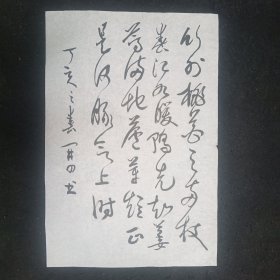 竹外桃花三两枝
春江水暖鸭先知蒌
蒿满地芦芽短正
是河豚欲上时
丁亥之春一井田书